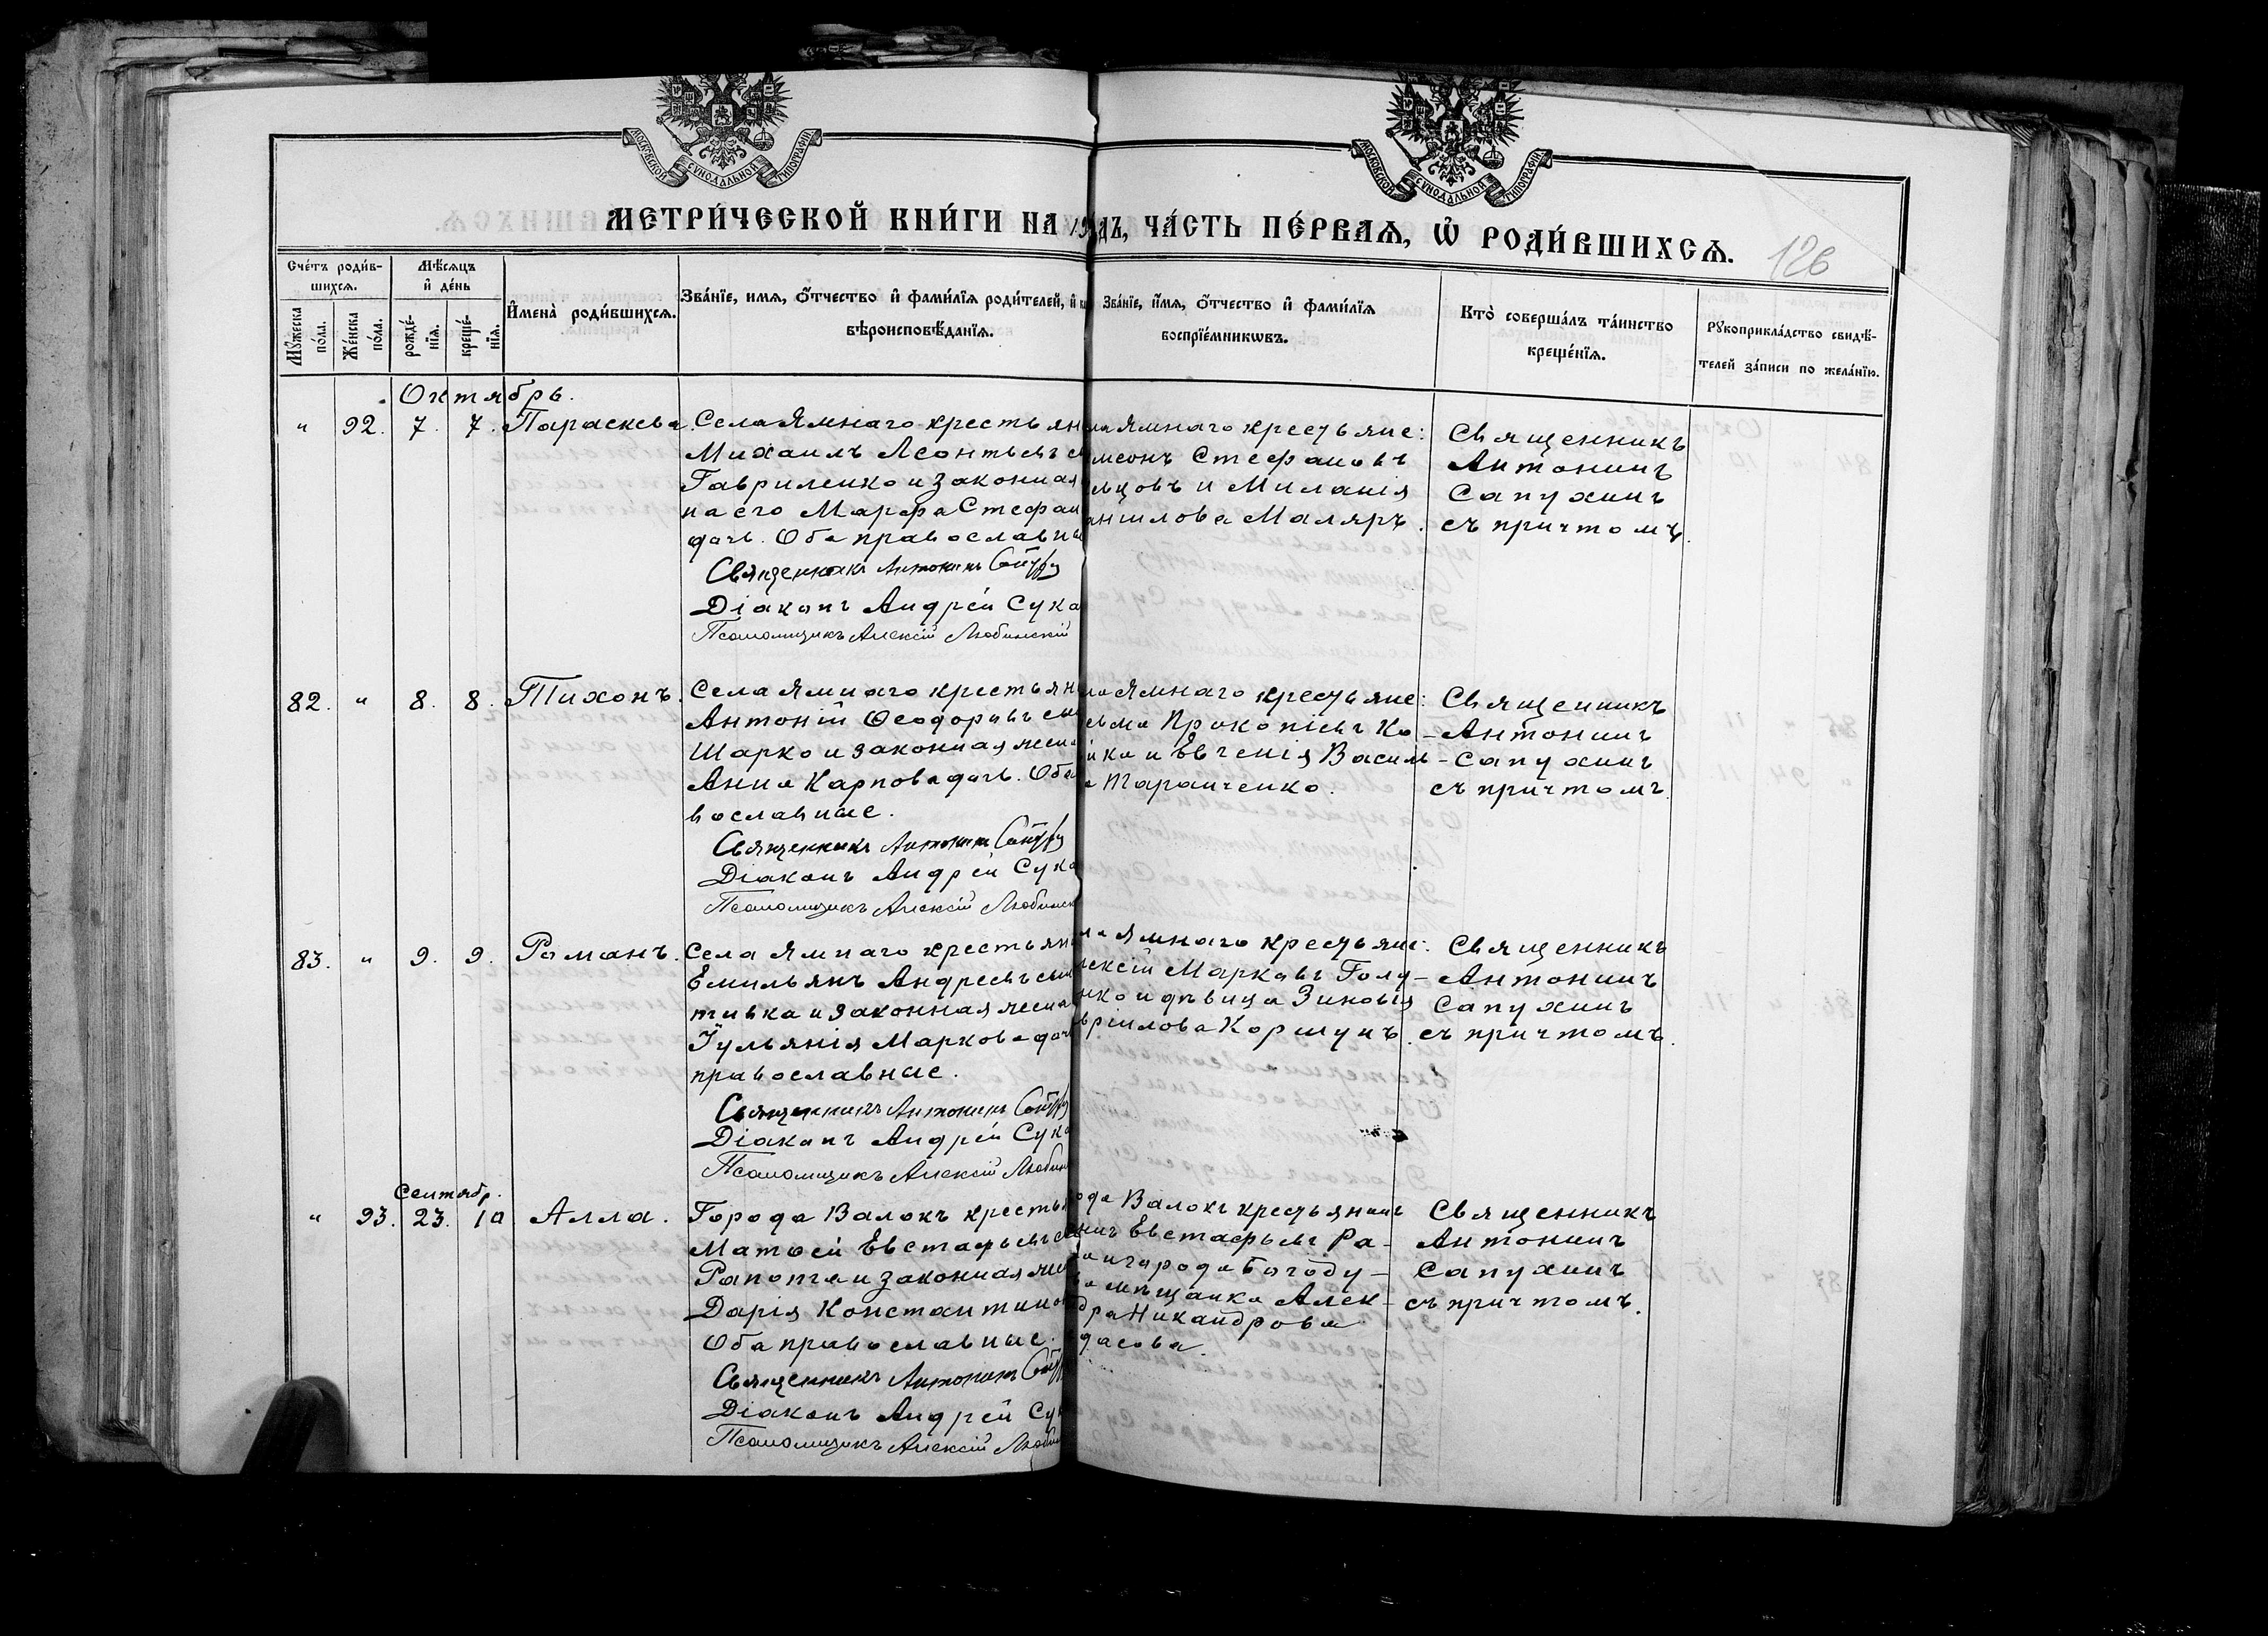 МОСКОВСКОЙ СУНОДАЛЬНОЙ ТИПОГРАФІИ
МОСКОВСКОЙ СУНОДАЛЬНОЙ ТИПОГРАФІИ
МЕТРИ́ЧЕСКОЙ КНИ́ГИ НА 19
ДЪ, ЧА́СТЬ ПЕ́РВАѦ, Ѡ҆ РОДИ́ВШИХСѦ.
126
Сче́тъ роди́в-
шихсѧ.
Мѣ́сѧцъ
и҆ де́нь
Мꙋ́жеска по́ла.
Же́нска по́ла.
рожде́-
нїѧ.
креще́-
нїѧ.
И҆мена̀ роди́вшихсѧ.
Зва́нїе, имѧ, ѻ҆́тчество и҆ фами́лїѧ роди́телей, и҆
вѣроисповѣ́данїѧ.
Зва́нїе, и҆́мѧ, ѻ҆́тчество и҆ фами́лїѧ
воспрїе́мникѡвъ.
Кто̀ соверша́лъ та́инство
креще́нїѧ.
Рꙋкоприкла́дство свидѣ́-
телей за́писи по жела́нїю.
Октябрь.
" 92. 7. 7. Параскева.
Села Ямнаго крестьян
Михаилъ Леонтьевъ с
Гавриленко и законная
на его Марфа Стефан
дочь. Оба православны
Священникъ Антонинъ
Діаконъ Андрей Сука
Псаломщикъ Алексій Любинскій
ла Ямнаго крестьяне:
меонъ Стефановъ
льцовъ и Миланія
аниилова Маляръ.
Священникъ
Антонинъ
Сапухинъ
съ причтомъ.
82. " 8. 8. Тихонъ.
Села Ямнаго крестьян
Антоній Ѳеодоровъ сы
Шарко и законная жен
Анна Карпова дочь. Оба
вославные.
Священникъ Антонинъ
Діаконъ Андрей Сука
Псаломщикъ Алексій Любинск
ла Ямнаго крестьяне:
сьма Прокопіевъ Ко-
йка и Евгенія Василь-
а Таранченко.
Священникъ
Антонинъ
Сапухинъ
съ причтомъ.
83. " 9. 9. Романъ.
Села Ямнаго крестьян
Емильянъ Андреевъ сын
тивка и законная жена
Іульянія Маркова доч
православные.
Священникъ Антонинъ
Діаконъ Андрей Сука
Псаломщикъ Алексій Любин
ла Ямнаго крестьяне:
лексій Марковъ Голу-
нко и дѣвица Зиновія
вріилова Коршунъ.
Священникъ
Антонинъ
Сапухинъ
съ причтомъ.
Сентябр.
" 93. 23. 10 Алла.
Города Валокъ крестья
Матѳей Евстафьевъ с
Рапопга и законная жен
Дарія Константинов
Оба православные.
Священникъ Антонинъ
Діаконъ Андрей Сук
Псаломщикъ Алексій Любин
ода Валокъ крестьянинъ
Евстафьевъ Ра-
и города Богоду-
мѣщанка Алек-
дра Никандрова
дасова.
Священникъ
Антонинъ
Сапухинъ
съ причтомъ.